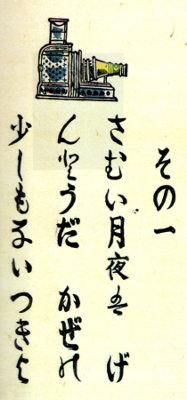 その一
さむい月夜は げ
んとうだ かぜの
少しもないつきよ